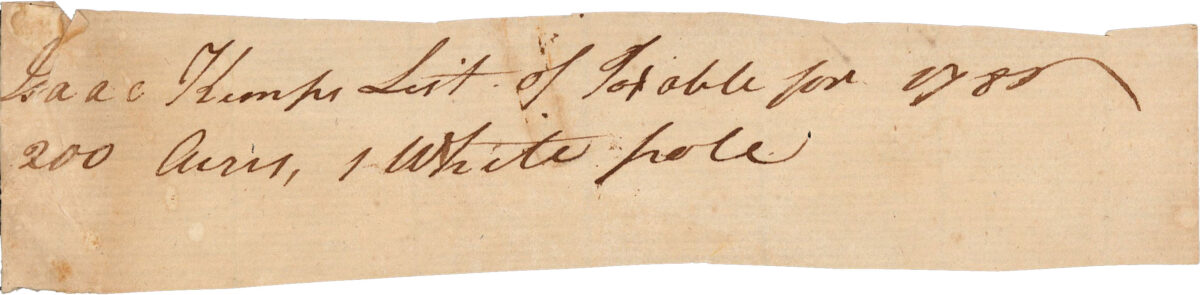 Isaac Kemps List of Taxable for 1785
200 Acres, 1 White pole